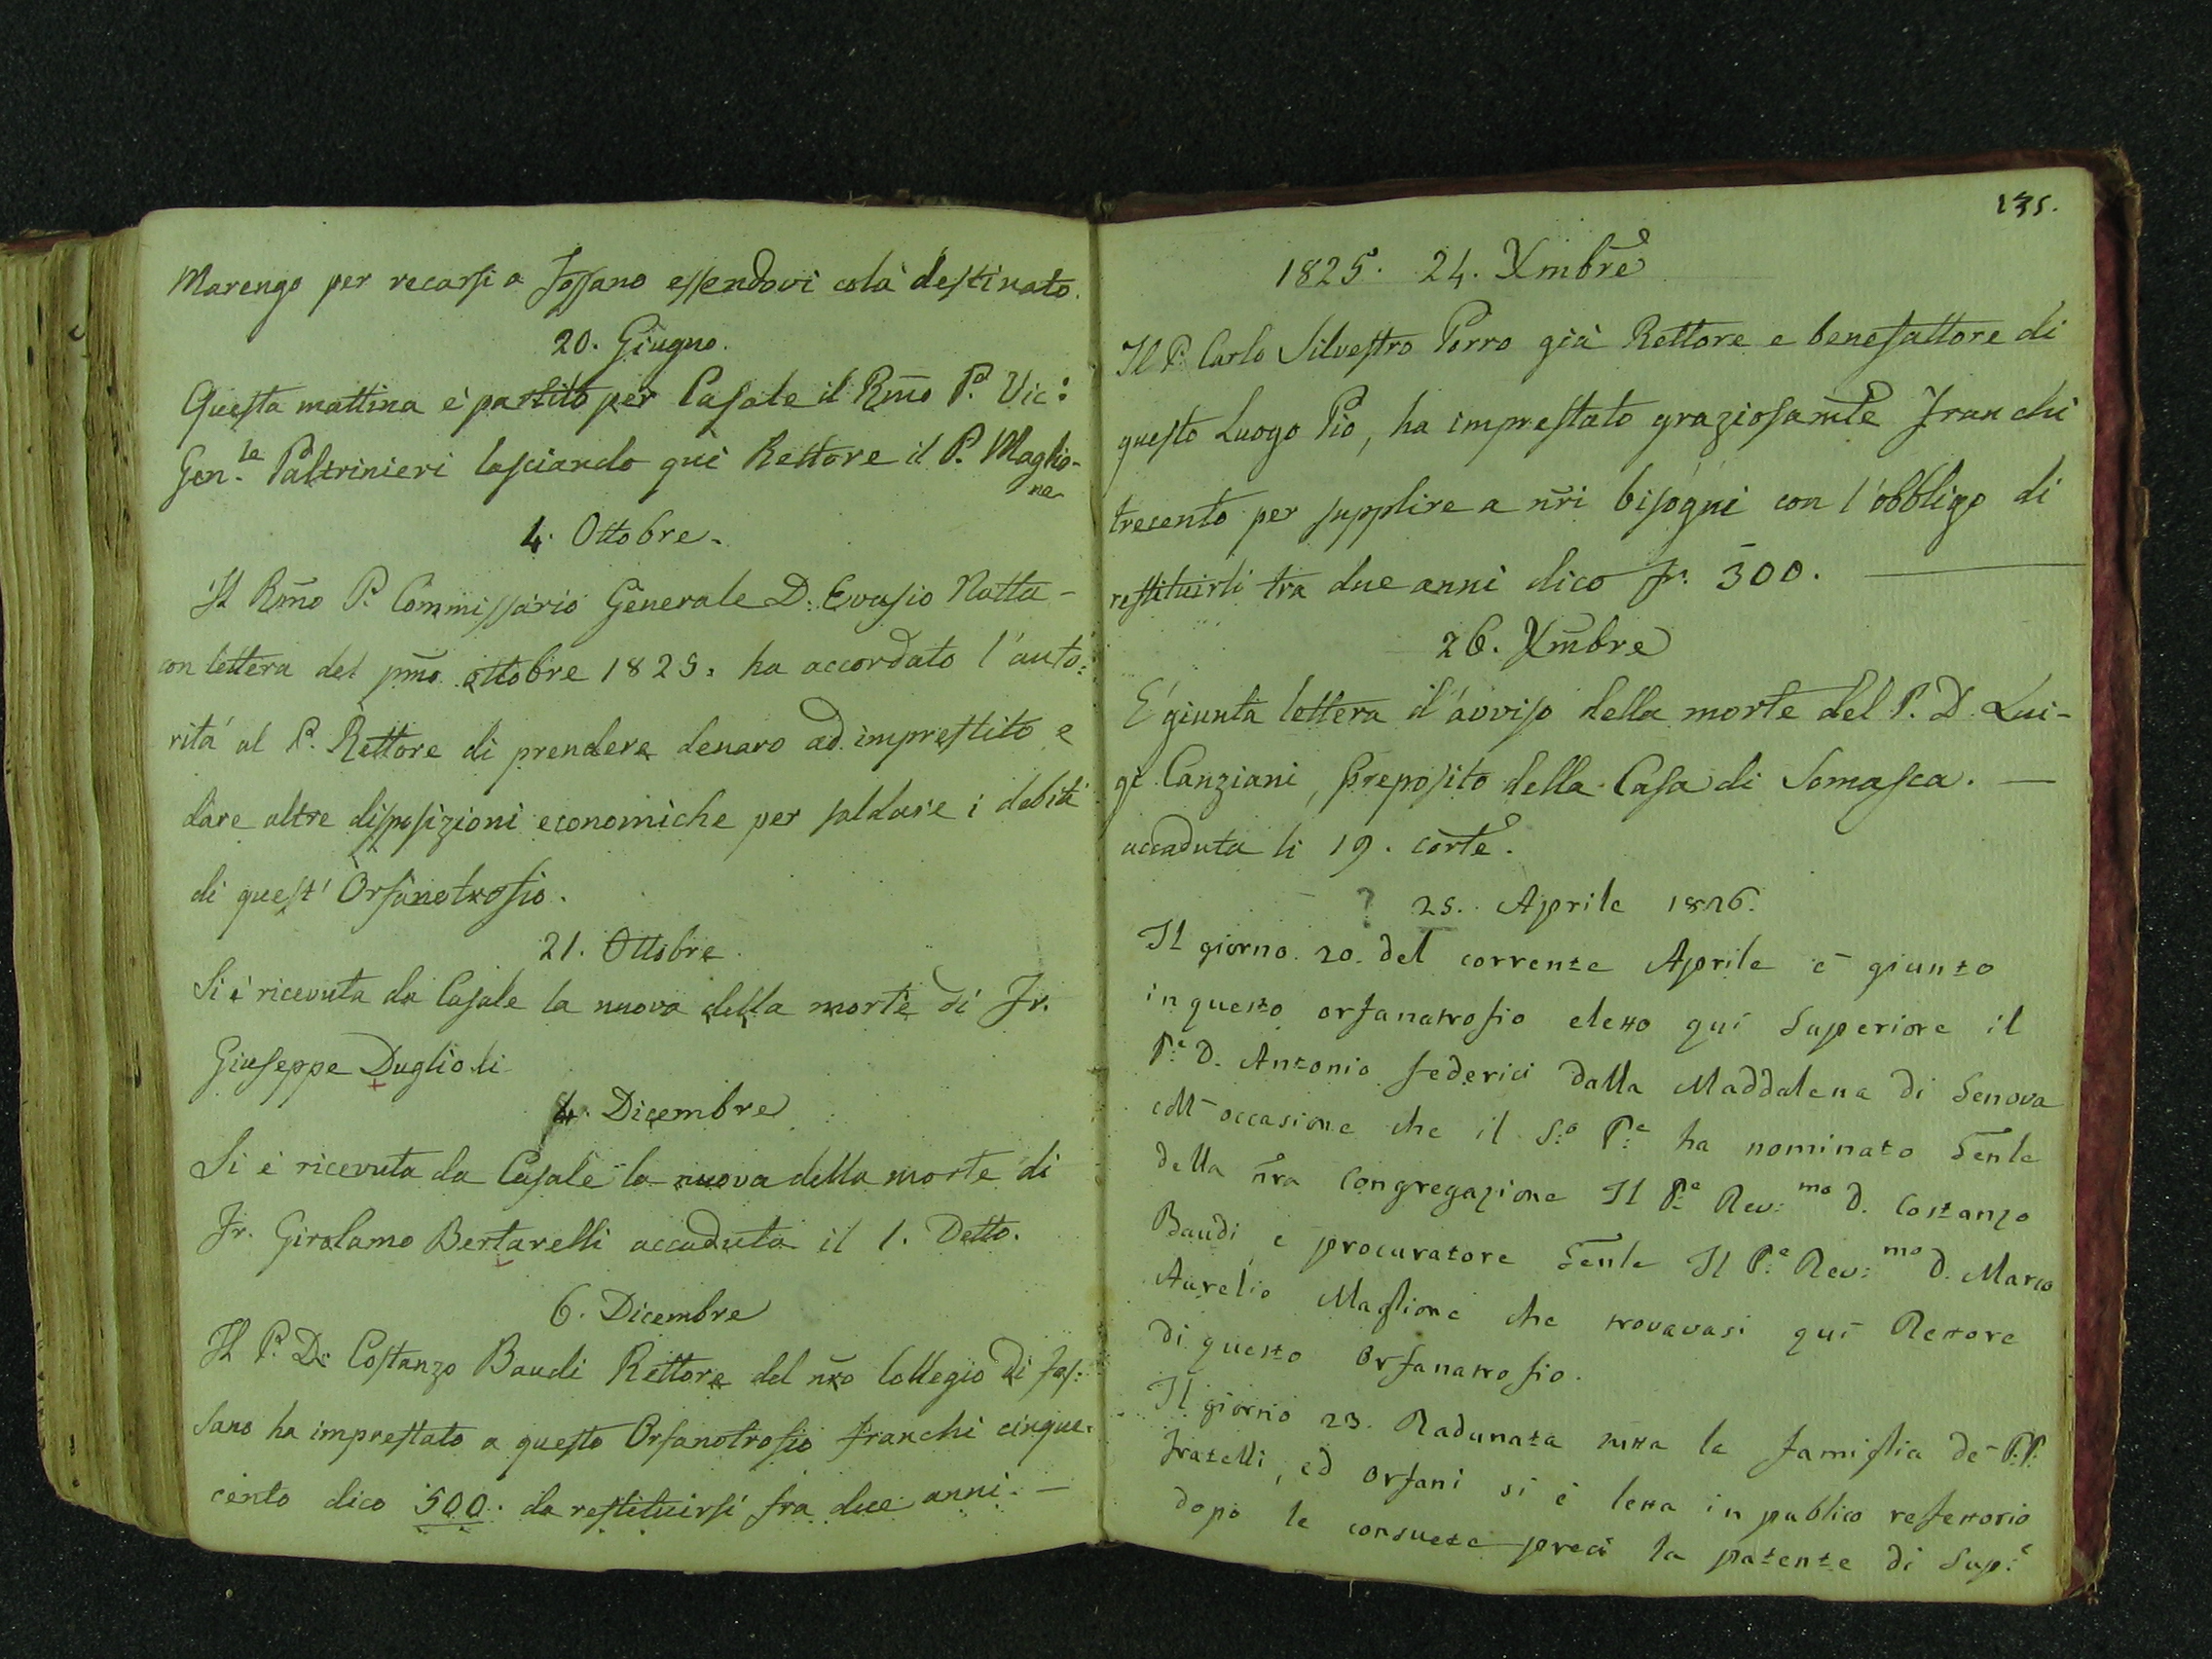 Marengo per recarsi a Fossano essendovi colà destinato.
20. Giugno.
Questa mattina è partito per Casale il Rmo P. Vic:
Gen.le Paltrinieri lasciando qui Rettore il P. Maglio-
ne
4. Ottobre.
Il Rmo P. Commissario Generale D. Evasio Natta -
con lettera del pmo ottobre 1825. ha accordato l'auto:
rità al P. Rettore di prendere denaro ad imprestito e
dare altre disposizioni economiche per saldare i debiti
di quest' Orfanotrofio.
21. Ottobre.
Si è ricevuta da Casale la nuova della morte di Fr.
Giuseppe Duglioli
4. Dicembre
Si è ricevuta da Casale la nuova della morte di
Fr. Girolamo Bertarelli accaduta il 1. Detto.
6. Dicembre
Il P. D. Costanzo Baudi Rettore del nro Collegio di Fos:
sano ha imprestato a questo Orfanotrofio franchi cinque.
cento dico 500. da restituirsi fra due anni. -
135.
1825. 24. Xmbre
Il P. Carlo Silvestro Porro già Rettore e benefattore di
questo Luogo Pio, ha imprestato graziosamte Franchi
trecento per supplire a nri bisogni con l'obbligo di
restituirli tra due anni dico fr. 300.
26. Xmbre
E' giunta lettera d'avviso della morte del P. D. Lui-
gi Canziani, Preposito della Casa di Somasca. -
accaduta li 19. corte.
? 25. Aprile 1826.
Il giorno 20. del corrente Aprile è giunto
in questo orfanatrofio eletto qui Superiore il
P.e D. Antonio Federici dalla Maddalena di Genova
coll'occasione che il S.o P.e ha nominato Genle
della nra Congregazione Il P.e Rev:mo D. Costanzo
Baudi, e procuratore Genle Il P.e Rev:mo D. Marco
Aurelio Maglione che trovavasi qui Rettore
di questo Orfanatrofio.
Il giorno 23. Radunata tutta la famiglia de' P.P.
Fratelli, ed Orfani si è letta in publico refettorio
dopo le consuete preci la patente di Sup.e